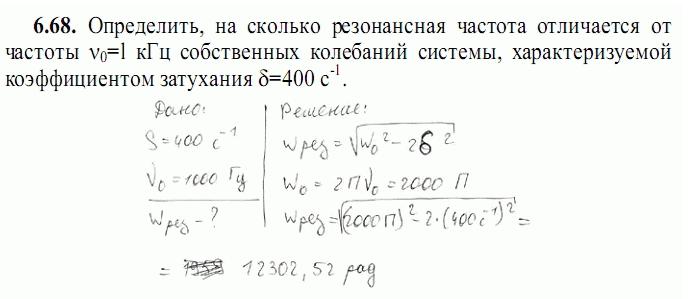 6.68. Определить, на сколько резонансная частота отличается от
частоты ν₀=1 кГц собственных колебаний системы, характеризуемой
коэффициентом затухания δ=400 с⁻¹.
Дано:
δ=400 с⁻¹
ν₀=1000 Гц
ωрез - ?
Решение:
ωрез=√(ω₀²-2δ²)
ω₀ = 2πν₀=2000 π
ωрез=√((2000π)²-2·(400с⁻¹)²)=
= 12302,52 рад